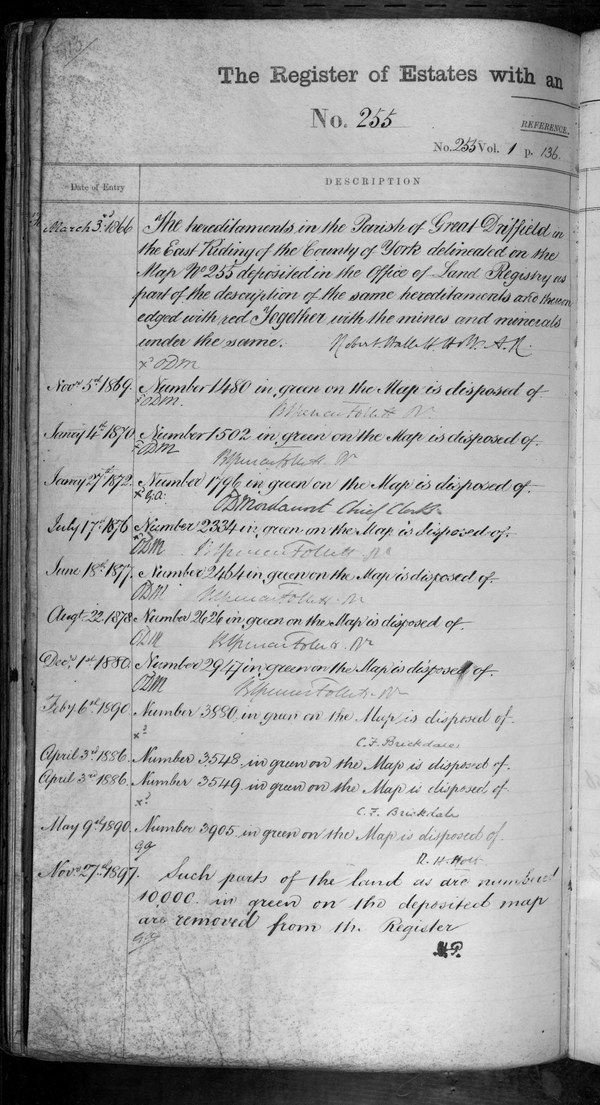 The Register of Estates with an
No. 255
REFERENCE.
No. 255 Vol. 1 p. 136.
Date of Entry
DESCRIPTION
March 3rd 1866 The hereditaments in the Parish of Great Driffield in
the East Riding of the County of York delineated on the
Map No 255 deposited in the Office of Land Registry as
part of the description of the same hereditaments and thereon
edged with red Together with the mines and minerals
under the same. Robert Hallett Holt. A.R.
x d ODM
Novr 5th 1869. Number 1480 in green on the Map is disposed of
ODM. B Spencer Follett Rr
Janry 4th 1870. Number 1502 in green on the Map is disposed of.
ODM B Spencer Follett Rr
Janry 27th 1872. Number 1796 in green on the Map is disposed of.
x G.A. ODMordaunt Chief Clerk
July 17th 1876 Number 2334 in green on the Map is disposed of.
ODM B Spencer Follett Rr
June 18th 1877. Number 2464 in green on the Map is disposed of.
ODM B Spencer Follett Rr
Augt 22 1878 Number 2626 in green on the Map is disposed of.
ODM B Spencer Follett Rr
Decr 1st 1880. Number 2947 in green on the Map is disposed of.
ODM B Spencer Follett Rr
Feby 6th 1890. Number 3880 in green on the Map is disposed of
C.F. Brickdale
April 3rd 1886. Number 3548 in green on the Map is disposed of.
April 3rd 1886. Number 3549 in green on the Map is disposed of
C.F. Brickdale
May 9th 1890. Number 3905 in green on the Map is disposed of
R. H. Holt
Novr 27th 1897. Such parts of the land as are numbered
10,000 in green on the deposited map
are removed from the Register